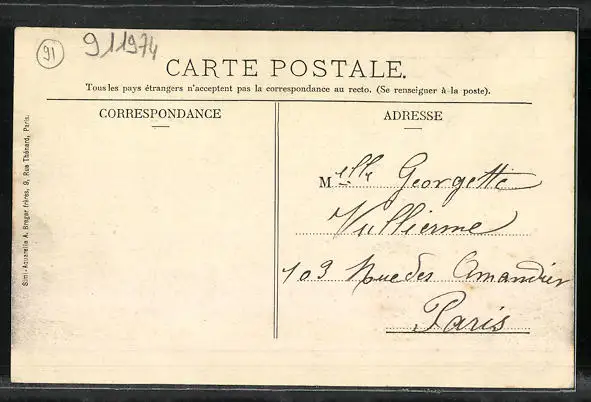 91
911974
CARTE POSTALE.
Tous les pays étrangers n'acceptent pas la correspondance au recto. (Se renseigner à la poste).
CORRESPONDANCE
ADRESSE
Melle Georgette
Vullierme
103 Rue des Amandier
Paris
Simi-Aquarelle A. Breger frères, 9, Rue Thénard, Paris.